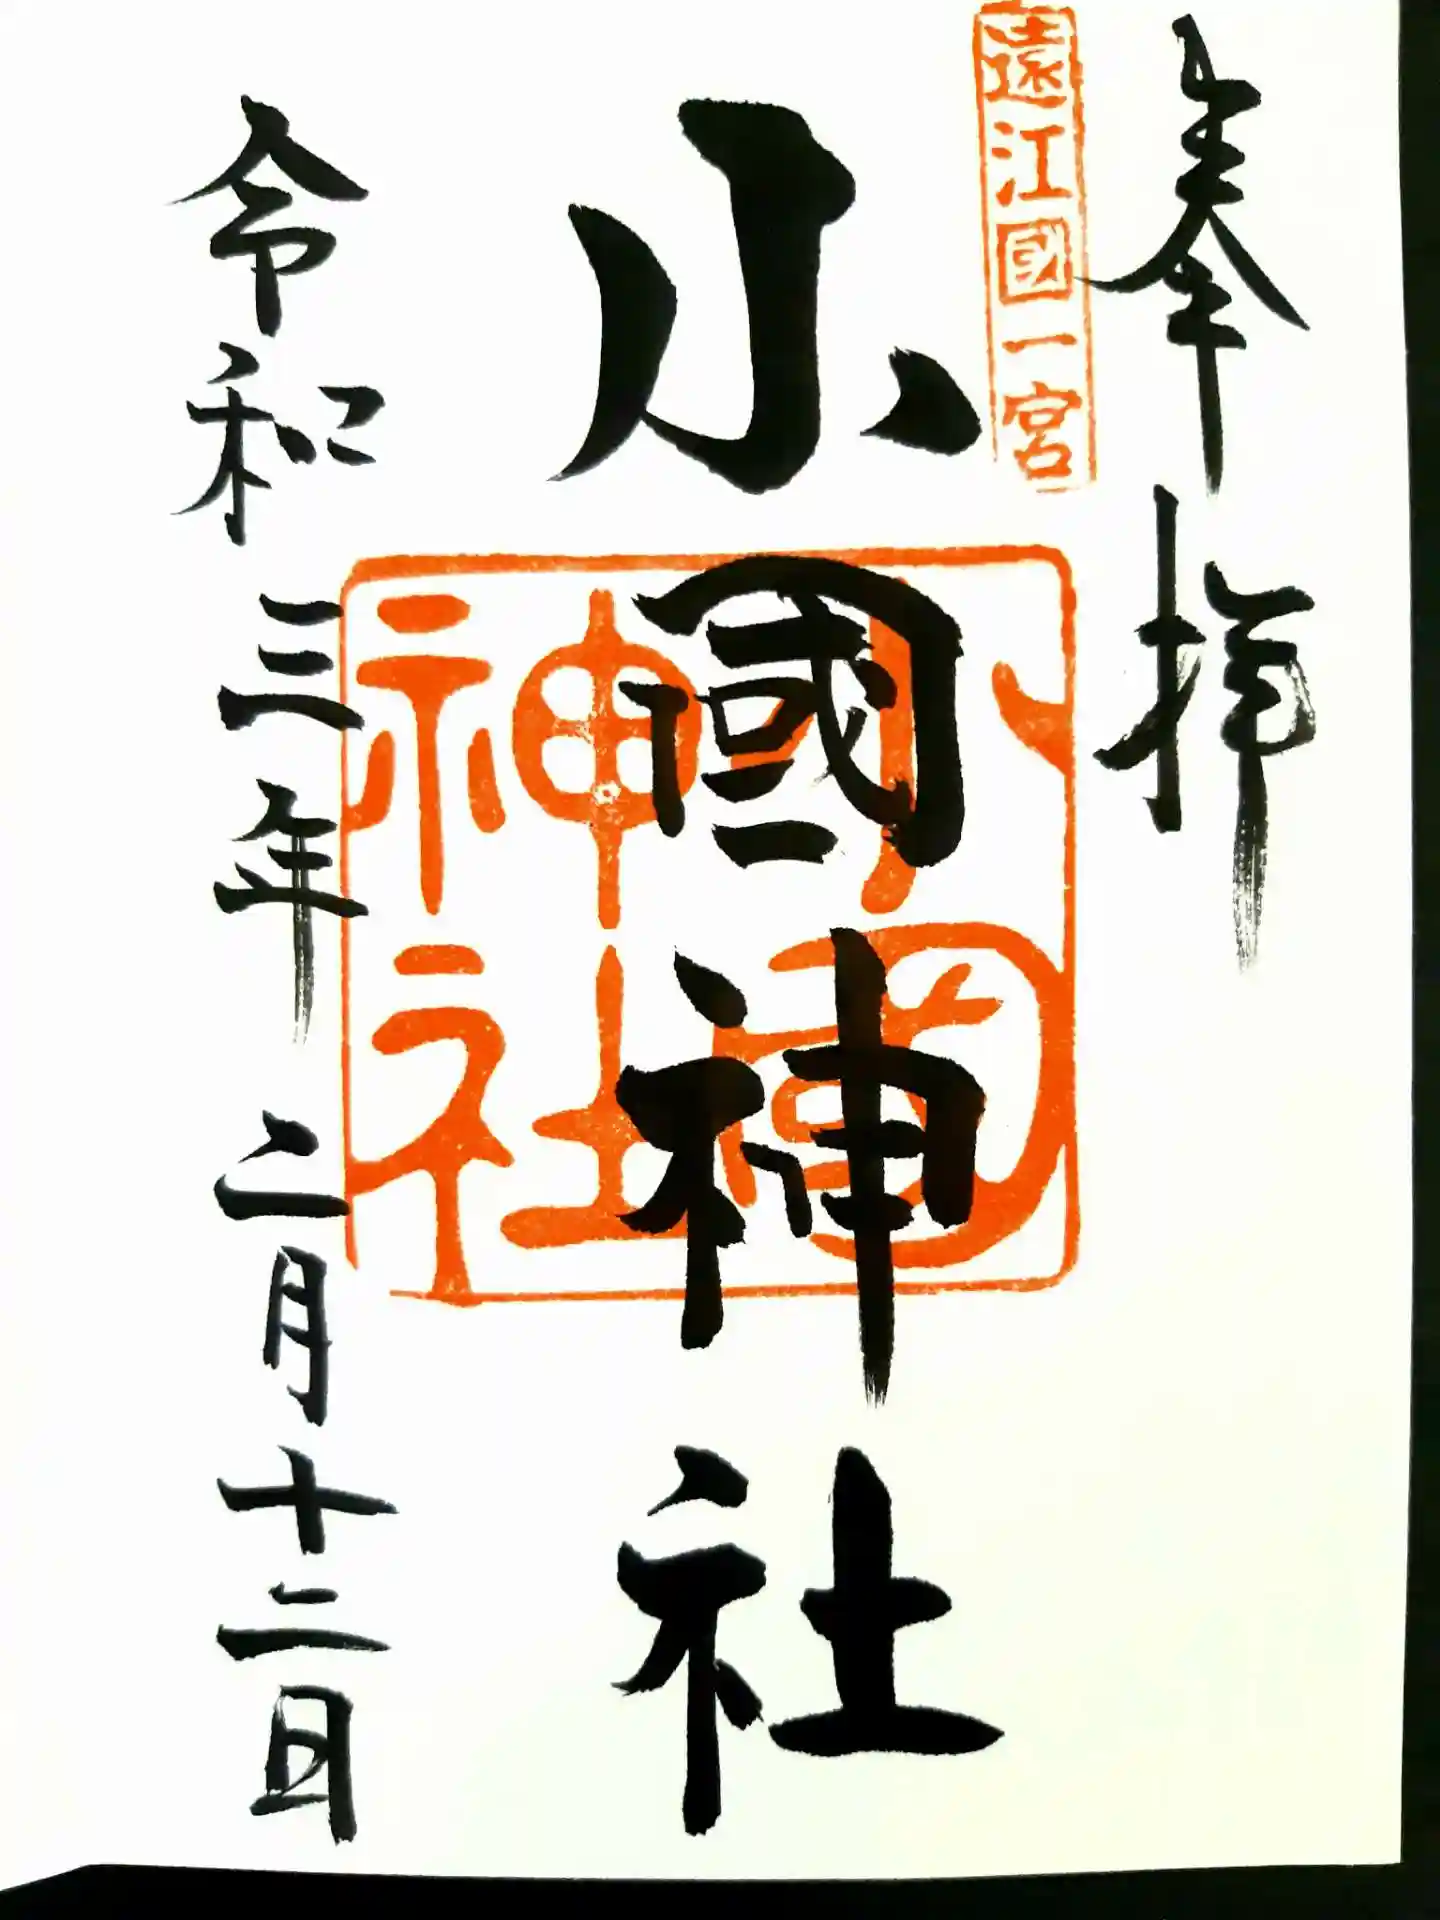 奉拝
遠江國一宮
小國神社
小國
神社
令和三年二月十二日